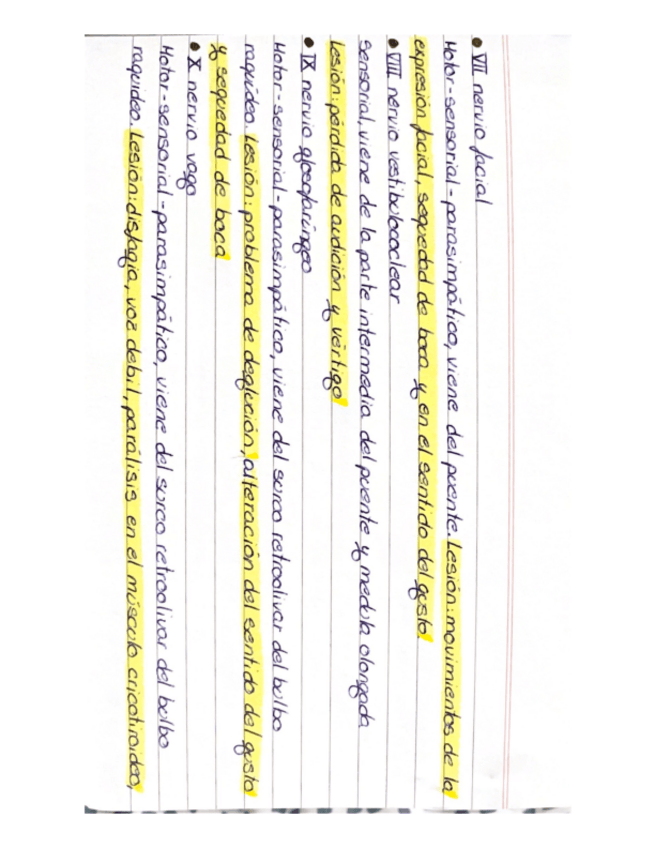 • VII nervio facial
Motor-sensorial-parasimpático, viene del puente. Lesión: movimientos de la
expresión facial, sequedad de boca y en el sentido del gusto.
• VIII nervio vestibulococlear
Sensorial, viene de la parte intermedia del puente y medula olongada
Lesión: pérdida de audición y vértigo
• IX nervio glosofaríngeo
Motor-sensorial-parasimpático, viene del surco retroolivar del bulbo
raquídeo. Lesión: problema de deglución, alteración del sentido del gusto
y sequedad de boca
• X nervio vago
Motor-sensorial-parasimpático, viene del surco retroolivar del bulbo
raquideo. Lesión: disfagia, voz debil, parálisis en el músculo cricotiroideo,